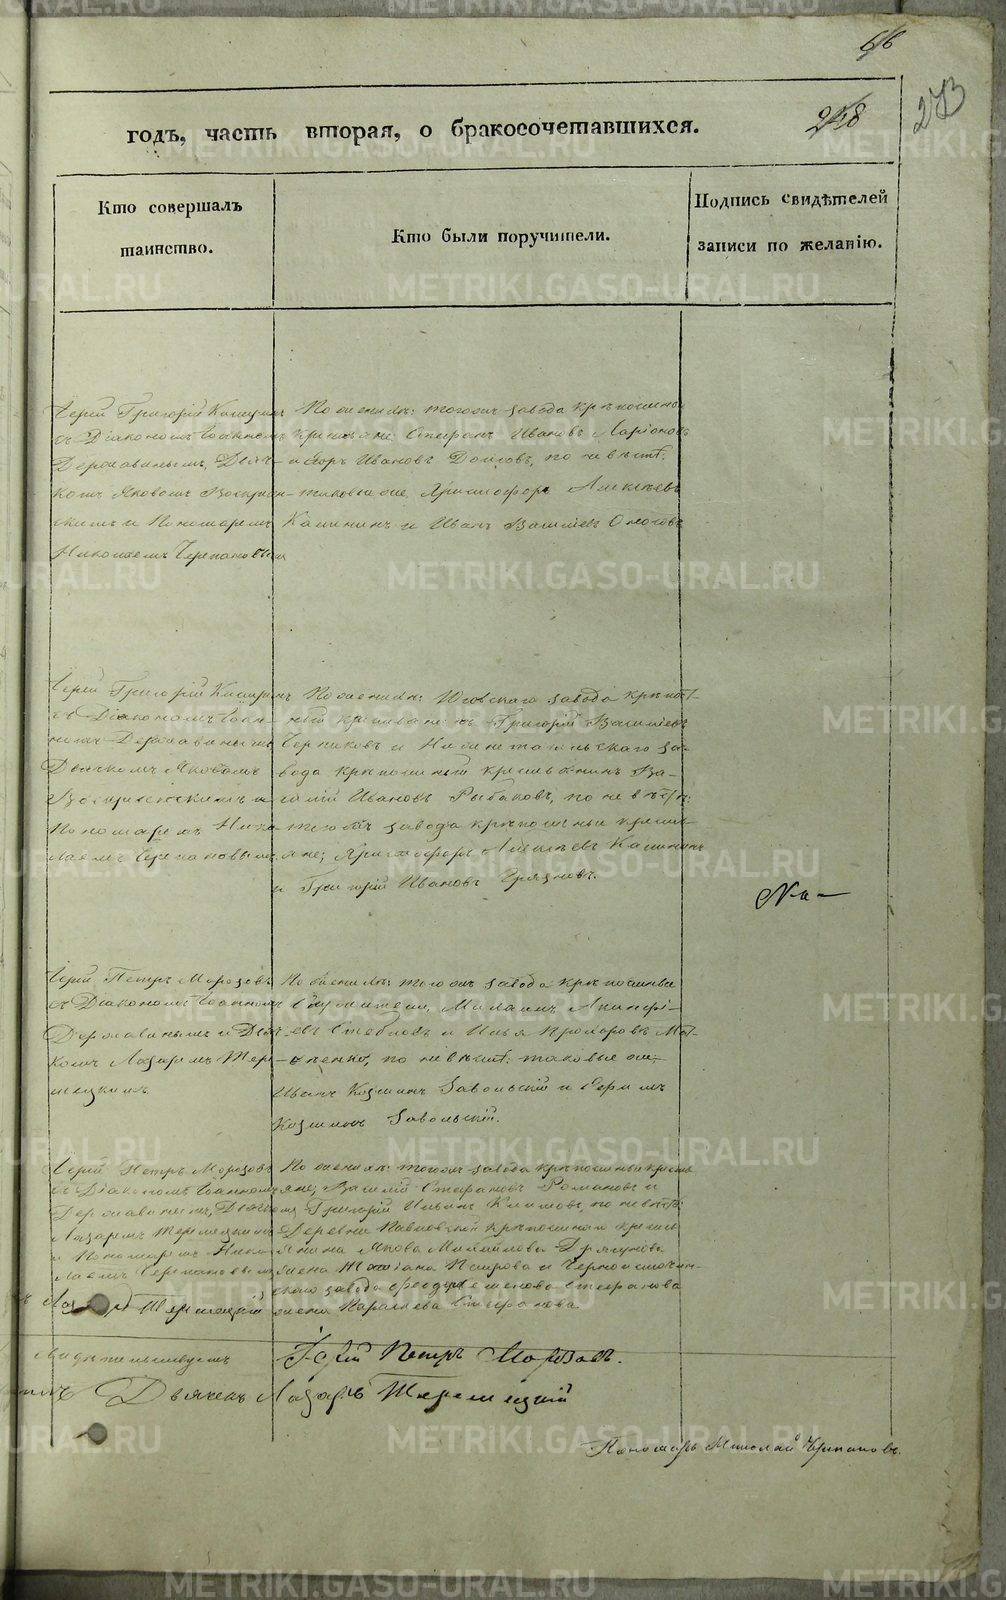 66
258
273
годъ, часть вторая, о бракосочетавшихся.
Кто совершалъ
таинство.
Кто были поручители.
Подпись свидѣтелей
записи по желанію.
Іерей Григорій
съ Діакономъ Іоанномъ
Державинымъ, Дьяч-
комъ Яковомъ Воскресен-
скимъ и Пономаремъ
Николаемъ Черепановымъ
По женихѣ: тогожъ завода крѣпостные
крестьяне Стефанъ Ивановъ Ларіоновъ
Ивановъ по невѣстѣ:
таковые же, Христофоръ Алексѣевъ
Калининъ и Иванъ Васильевъ
Іерей Григорій
съ Діакономъ Іоан-
номъ Державинымъ
Дьячкомъ Яковомъ
Воскресенскимъ и
Пономаремъ Нико-
лаемъ Черепановымъ
По женихѣ: Юговскаго завода крѣпост-
ный крестьянинъ Григорій Васильевъ
Черниковъ и Нижнетагильскаго за-
вода крѣпостный крестьянинъ Ва-
силій Ивановъ Рыбаковъ, по невѣстѣ:
тогожъ завода крѣпостные кресть-
яне; Христофоръ Алексѣевъ Калининъ
и Григорій Ивановъ Грязновъ.
Іерей Петръ Морозовъ
съ Діакономъ Іоанномъ
Державинымъ и Дьяч-
комъ Лазаремъ
По женихѣ: тогожъ завода крѣпостные
Служители, Михаилъ Акинфі-
евъ Стебловъ и Илья Прохоровъ
по невѣстѣ: таковые же,
Иванъ Козминъ Завольскій и Ефимъ
Козминъ Завольскій.
Іерей Петръ Морозовъ
съ Діакономъ Іоанномъ
Державинымъ, Дьячкомъ
Лазаремъ
и Пономаремъ Нико-
лаемъ Черепановымъ
По женихѣ: тогожъ завода крѣпостные кресть-
яне; Василій Стефановъ Романовъ и
Григорій Ильинъ Климовъ, по невѣстѣ:
Деревни Павловской крѣпостнаго кресть-
янина Якова Михайлова Дрягунова
жена Татіана Петрова и Черноисточин-
скаго завода Стефанова
жена Параскева Стефанова
Іерей Петръ Морозовъ.
Дьячекъ Лазарь
Пономарь Николай Черепановъ.
METRIKI.GASO-URAL.RU